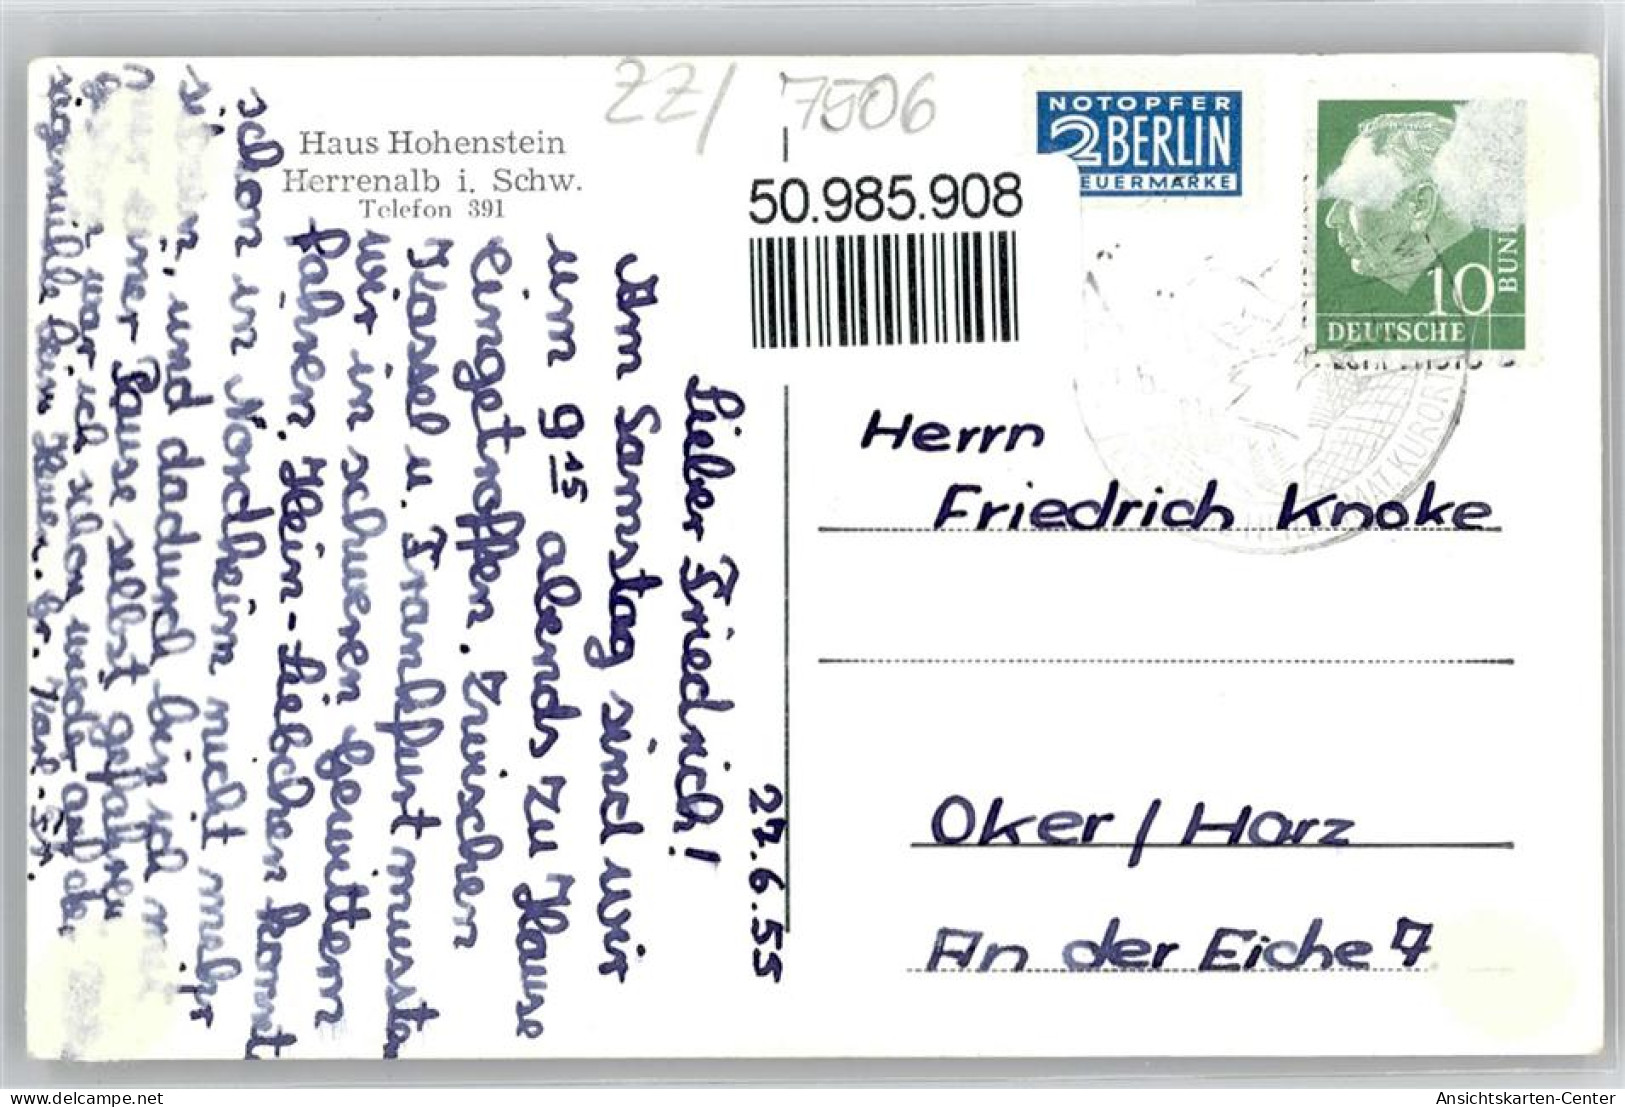 ZZ/ 7506
Haus Hohenstein
Herrenalb i. Schw.
Telefon 391
50.985.908
NOTOPFER
2 BERLIN
EUERMARKE
10
BUN
DEUTSCHE
KURORT
27.6.55
Lieber Friedrich!
Am Samstag sind wir
um 9 15 abends zu Hause
eingetroffen. Zwischen
Kassel u. Frankfurt mussten
wir in schweren Gewittern
fahren. Klein-Liebchen kommt
schon in Northeim nicht mehr
und dadurch bin ich
einer Pause selbst gefahren
war ich schon wieder auf der
Karl-
Herrn
Friedrich Knoke
Oker / Harz
An der Eiche 7
Ansichtskarten-Center